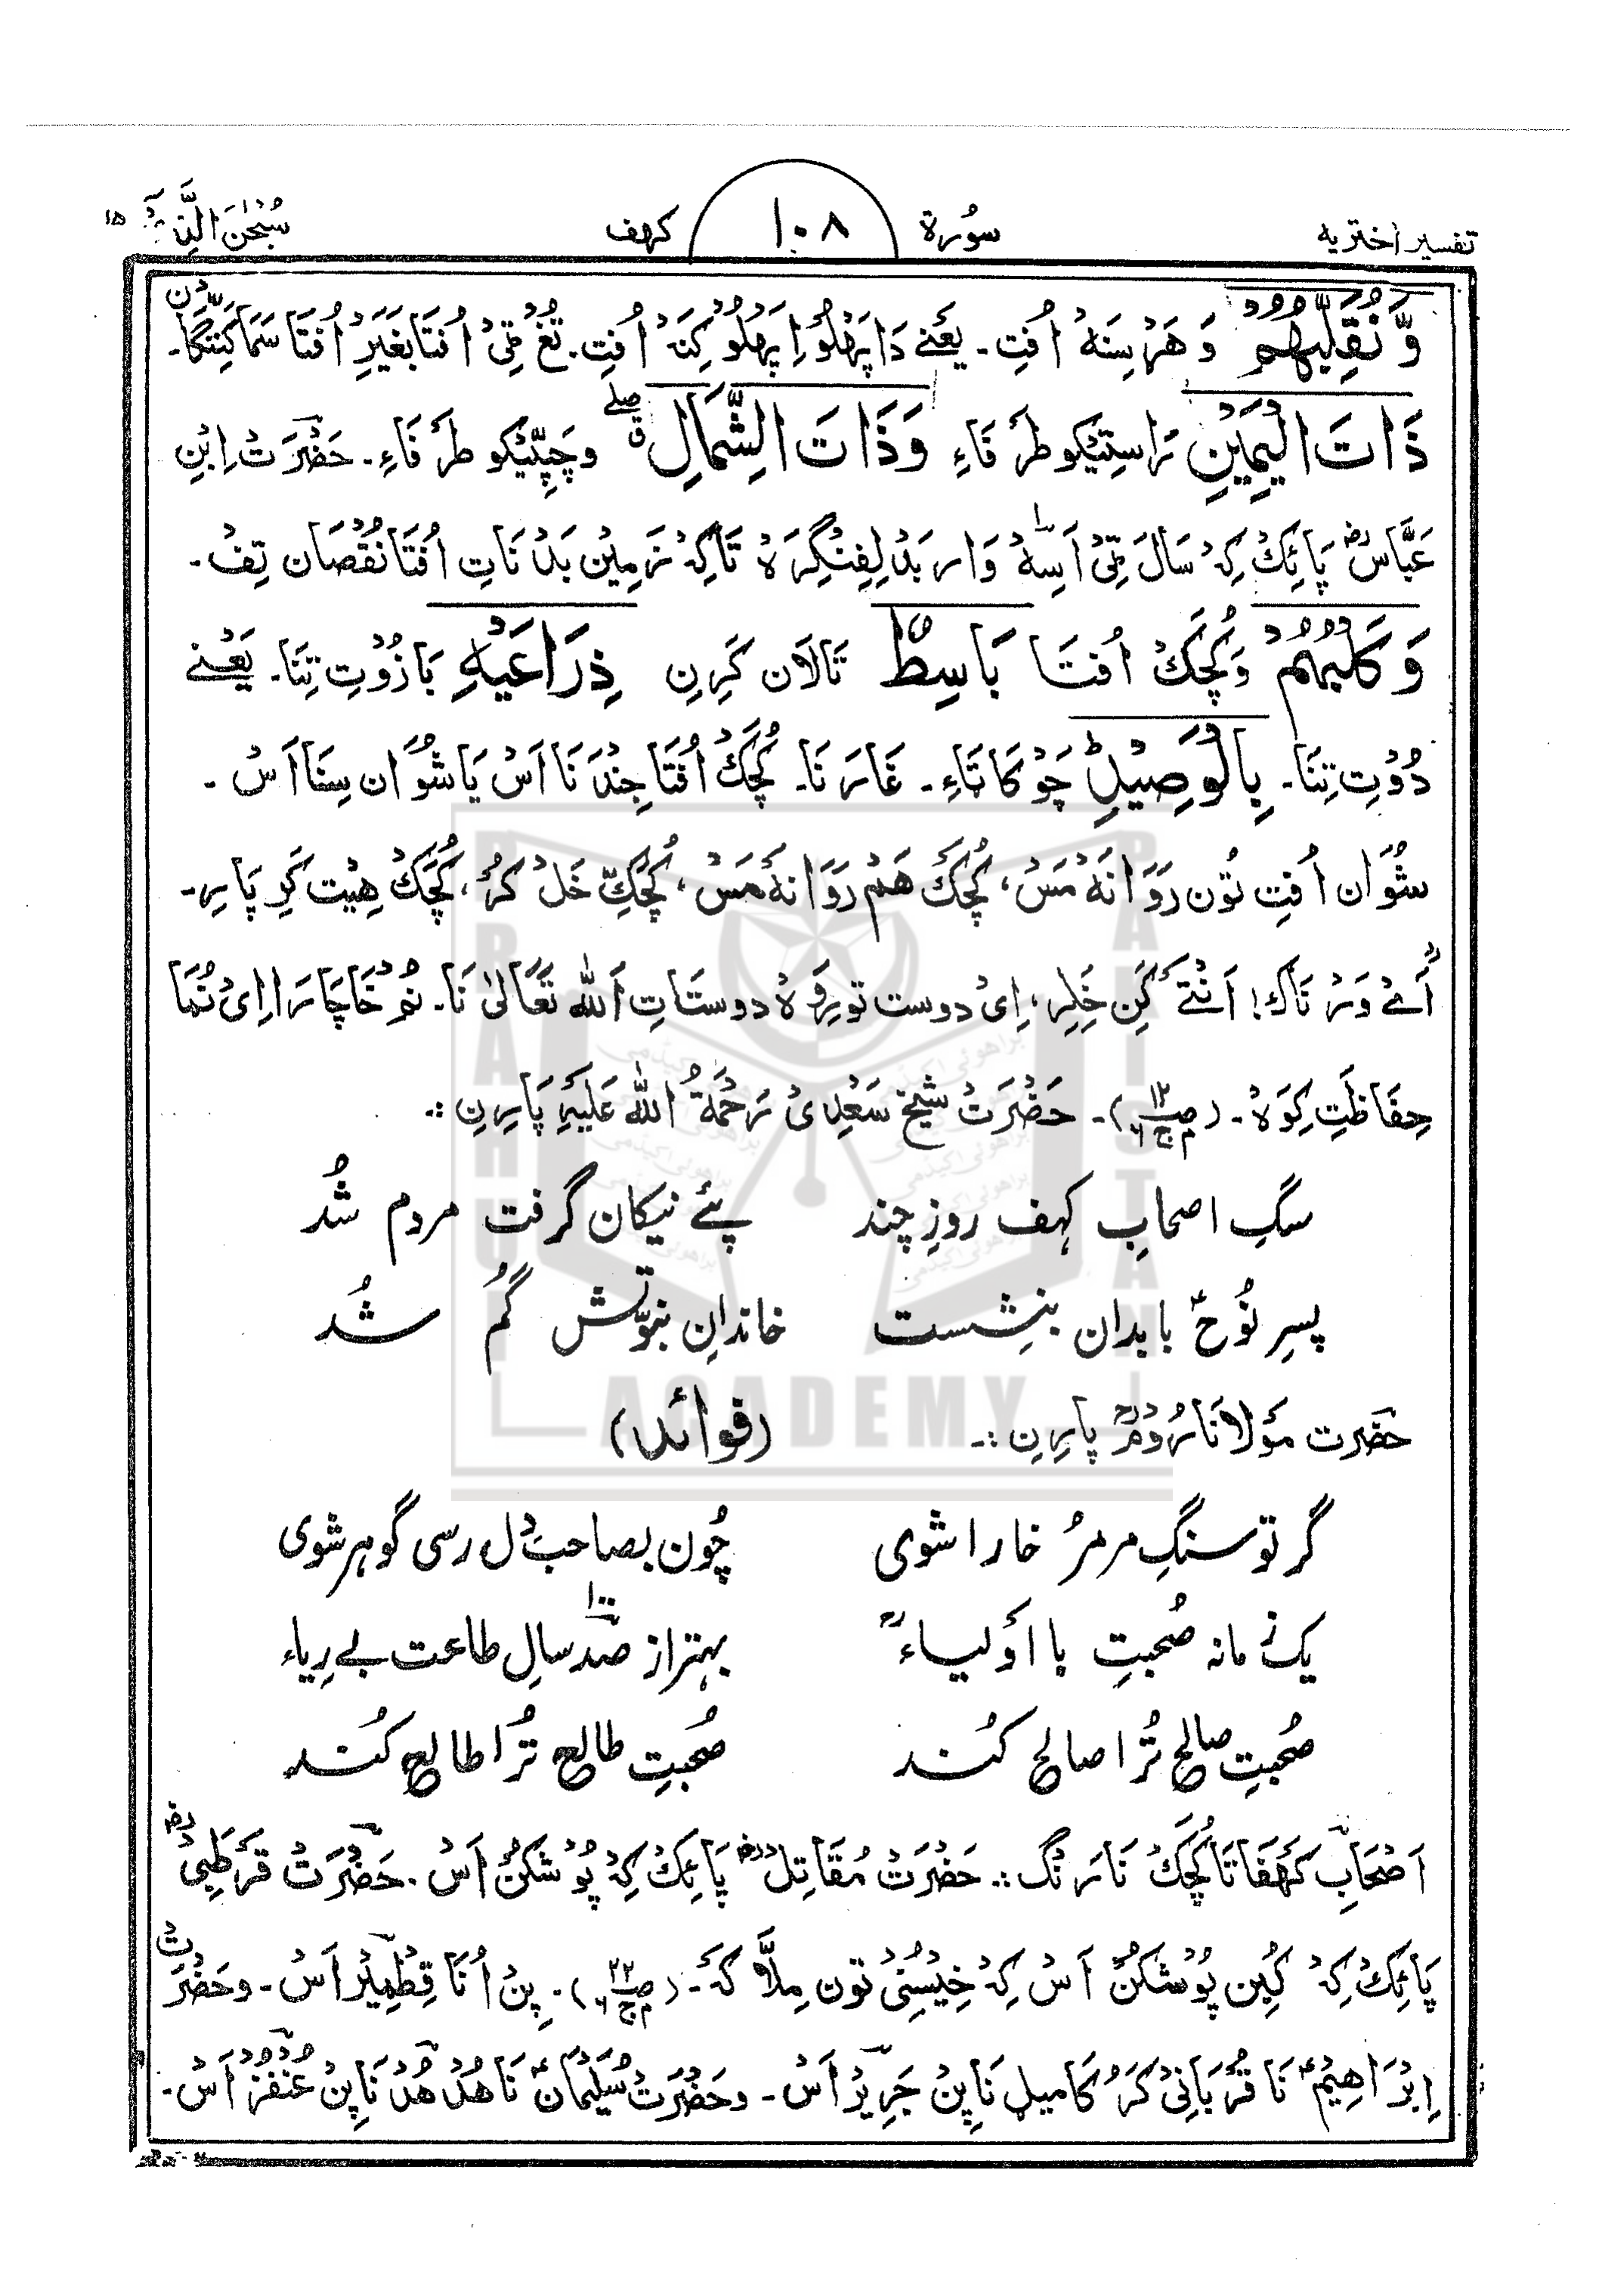 تفسیر اختریه سُورة ۱۰۸ کہف سُبْحٰنَ الَّذِیْ ۱۵
وَّنُقَلِّبُهُمْ وَهَرْسِنَهْ اُفتِ۔ یَعْنے دَا پَہْلُوْ اِ پَہْلُوْ کِنَهْ اُفتِ۔ تُغْ مِٹیْ اُفتَا بَغَیَرِ اُفتَا سَمَا کِتِنْگَا۔
ذَاتَ الْیَمِیْنِ رَاسِتِیْکو طَرَفَاءِ وَذَاتَ الشِّمَالِ وچَپِّیْکو طَرَفَاءِ۔ حَضْرَتْ اِبْنِ
عَبَّاسْ پَائِکْ کِهْ سَالَ مِٹیْ اَسِہْ وَار بَدْلِفِنْگِرَهْ تَاکِهْ زَمِیْن بَدَنَاتِ اُفتَا نُقْصَان تِفْ۔
وَکَلْبُهُمْ وَکُچَّکْ اُفتَا بَاسِطٌ تَالَان کَرِنِ ذِرَاعَیْهِ بَازُوْتِ تِنَا۔ یَعْنے
دُوْتِ تِنَا۔ بِالْوَصِیْدِ چَوْکَاتَاءِ۔ غَارَنَا۔ کُچَّکْ اُفتَا جِنْدَنَا اَسْ یَا شُوَان سِنَا اَسْ۔
شُوَان اُفتِ تُون رَوَانَهْ مَسْ، کُچَّکْ هَم رَوَانَهْ مَسْ، کُچَّکِّ خَلْ کَرُ، کُچَّکْ هِیْت کَرِ پَارِ۔
اَےْ وَرْنَاکْ! اَنْتَےْ کَنِ خَلِرِ، اِیْ دوست تورِفَهْ دوستَاتِ اَللّٰه تَعَالیٰ نَا۔ نُمْ خَاچَا رَا اِیْ نُمَا
حِفَاظَتِ کِوَهْ۔ (ص۱۲ م ج ۶)۔ حَضْرَتْ شیْخ سَعْدِیْ رَحْمَةُ اللّٰه عَلَیْهِ پَارِنِ :۔
سگِ اصحابِ کہف روزِ چند پئے نیکان گرفت مردم شُد
پسرِ نُوحؑ با بدان بنِشست خاندانِ نبوّتش گُم شُد
حضرت مَولَانَا رُومْؒ پارِنِ :۔ (فوائد)
گر تو سنگِ مرمرُ خارا شوی چُون بصاحبدل رسی گوہر شوی
یک زمانه صُحبتِ با اَولیاءؒ بہتر از صد ۱۰۰ سالِ طاعت بے رِیاء
صُحبتِ صالح تُرا صالح کُند صُحبتِ طالح تُرا طالح کُند
اَصْحَابِ کَهَفَاتَا کُچَّکْ نَا رَنْگ :۔ حَضْرَتْ مُقَاتِل پَائِکْ کِهْ پُوشکُنْ اَسْ۔ حَضْرَتْ قَرَطَبِیْ
پَائِکْ کِهْ کُبِن پُوشکُنْ اَسْ کِهْ خِیْسُنِیْ تون مِلَّا کَهْ۔ (ص۲۲ م ج ۶)۔ پِنْ اُنَا قِطْمِیْر اَسْ۔ وحَضْرَتْ
اِبْرَاهِیْمؑ نَا قُرْبَانِیْ کَرُ کَامیلِ نَا پِنْ جَرِیْر اَسْ۔ وحَضْرَتْ سُلَیْمَانؑ نَا هُدْهُدْ نَا پِنْ عُنْفُزْ اَسْ۔
BRAHUI ACADEMY PAKISTAN